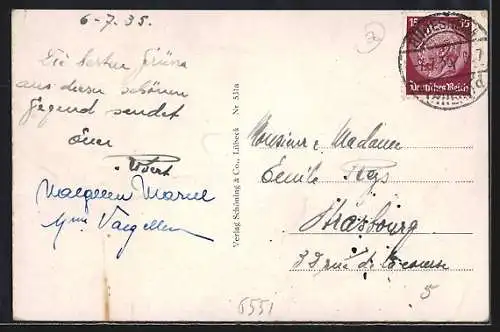 6-7.35.
Die besten Grüße
aus dieser schönen
Gegend sendet
Euer
Robert
Marcel
Mme
Verlag Schöning & Co., Lübeck Nr 531a
15
Deutsches Reich
Monsieur & Madame
Emile Reys
Strasbourg
32 rue de la course
5
6551